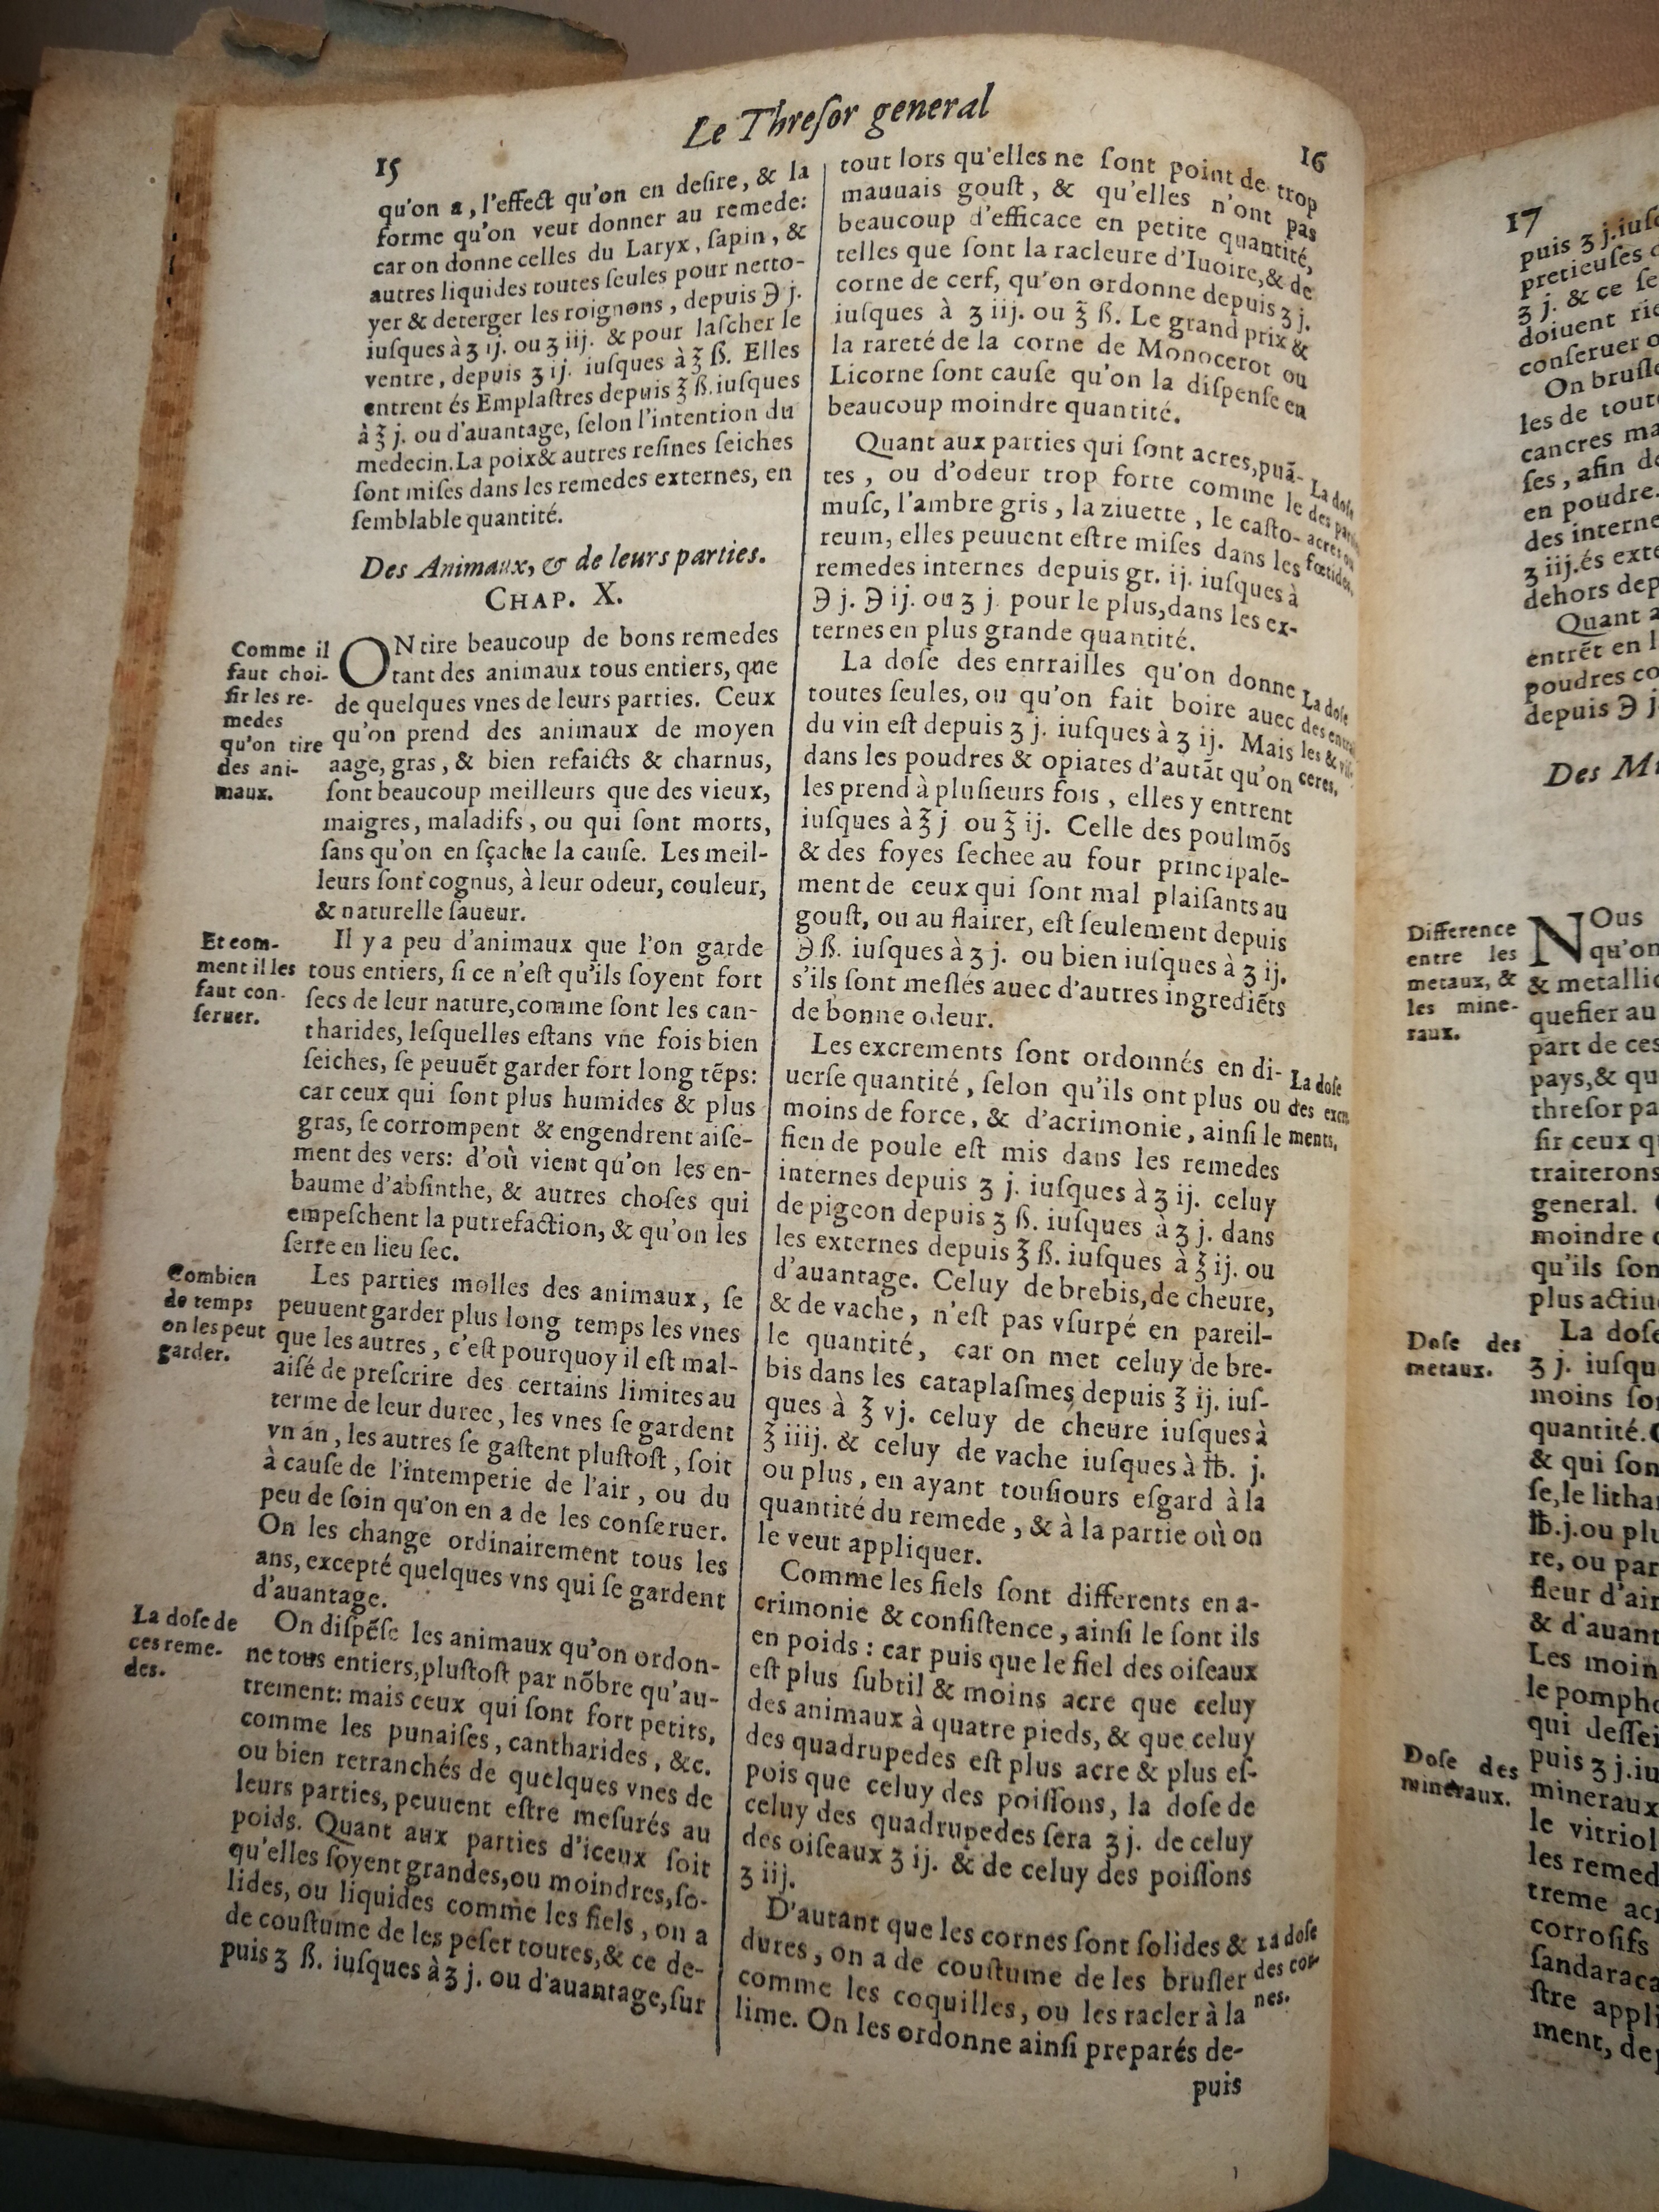 Le Thresor general
15
qu'on a, l'effect qu'on en desire, & la
forme qu'on veut donner au remede:
car on donne celles du Laryx, sapin, &
autres liquides toutes seules pour netto-
yer & deterger les roignons, depuis ℈ j.
iusques à ʒ ij. ou ʒ iij. & pour lascher le
ventre, depuis ʒ ij. iusques à ℥ ß. Elles
entrent és Emplastres depuis ℥ ß. iusques
à ℥ j. ou d'auantage, selon l'intention du
medecin. La poix & autres resines seiches
sont mises dans les remedes externes, en
semblable quantité.
Des Animaux, & de leurs parties.
CHAP. X.
Comme il
faut choi-
sir les re-
medes
qu'on tire
des ani-
maux.
ON tire beaucoup de bons remedes
tant des animaux tous entiers, que
de quelques vnes de leurs parties. Ceux
qu'on prend des animaux de moyen
aage, gras, & bien refaicts & charnus,
sont beaucoup meilleurs que des vieux,
maigres, maladifs, ou qui sont morts,
sans qu'on en sçache la cause. Les meil-
leurs sont cognus, à leur odeur, couleur,
& naturelle saueur.
Et com-
ment il les
faut con-
seruer.
Il y a peu d'animaux que l'on garde
tous entiers, si ce n'est qu'ils soyent fort
secs de leur nature, comme sont les can-
tharides, lesquelles estans vne fois bien
seiches, se peuuẽt garder fort long tẽps:
car ceux qui sont plus humides & plus
gras, se corrompent & engendrent aise-
ment des vers: d'où vient qu'on les en-
baume d'absinthe, & autres choses qui
empeschent la putrefaction, & qu'on les
serre en lieu sec.
Combien
de temps
on les peut
garder.
Les parties molles des animaux, se
peuuent garder plus long temps les vnes
que les autres, c'est pourquoy il est mal-
aisé de prescrire des certains limites au
terme de leur duree, les vnes se gardent
vn an, les autres se gastent plustost, soit
à cause de l'intemperie de l'air, ou du
peu de soin qu'on en a de les conseruer.
On les change ordinairement tous les
ans, excepté quelques vns qui se gardent
d'auantage.
La dose de
ces reme-
des.
On dispẽse les animaux qu'on ordon-
ne tous entiers, plustost par nõbre qu'au-
trement: mais ceux qui sont fort petits,
comme les punaises, cantharides, &c.
ou bien retranchés de quelques vnes de
leurs parties, peuuent estre mesurés au
poids. Quant aux parties d'iceux soit
qu'elles soyent grandes, ou moindres, so-
lides, ou liquides comme les fiels, on a
de coustume de les peser toutes, & ce de-
puis ʒ ß. iusques à ʒ j. ou d'auantage, sur
16
tout lors qu'elles ne sont point de trop
mauuais goust, & qu'elles n'ont pas
beaucoup d'efficace en petite quantité,
telles que sont la racleure d'Iuoire, & de
corne de cerf, qu'on ordonne depuis ʒ j.
iusques à ʒ iij. ou ℥ ß. Le grand prix &
la rareté de la corne de Monocerot ou
Licorne sont cause qu'on la dispense en
beaucoup moindre quantité.
Quant aux parties qui sont acres, puã-
tes, ou d'odeur trop forte comme le
musc, l'ambre gris, la ziuette, le casto-
reum, elles peuuent estre mises dans les
remedes internes depuis gr. ij. iusques à
℈ j. ℈ ij. ou ʒ j. pour le plus, dans les ex-
ternes en plus grande quantité.
La dose
des
acres ou
fœtides.
La dose des entrailles qu'on donne
toutes seules, ou qu'on fait boire auec
du vin est depuis ʒ j. iusques à ʒ ij. Mais
dans les poudres & opiates d'autãt qu'on
les prend à plusieurs fois, elles y entrent
iusques à ℥ j ou ℥ ij. Celle des poulmõs
& des foyes sechee au four principale-
ment de ceux qui sont mal plaisants au
goust, ou au flairer, est seulement depuis
℈ ß. iusques à ʒ j. ou bien iusques à ʒ ij.
s'ils sont meslés auec d'autres ingrediẽts
de bonne odeur.
La dose
des entra
les & vis-
ceres.
Les excrements sont ordonnés en di-
uerse quantité, selon qu'ils ont plus ou
moins de force, & d'acrimonie, ainsi le
fien de poule est mis dans les remedes
internes depuis ʒ j. iusques à ʒ ij. celuy
de pigeon depuis ʒ ß. iusques à ʒ j. dans
les externes depuis ℥ ß. iusques à ℥ ij. ou
d'auantage. Celuy de brebis, de cheure,
& de vache, n'est pas vsurpé en pareil-
le quantité, car on met celuy de bre-
bis dans les cataplasmes depuis ℥ ij. ius-
ques à ℥ vj. celuy de cheure iusques à
℥ iiij. & celuy de vache iusques à ℔. j.
ou plus, en ayant tousiours esgard à la
quantité du remede, & à la partie où on
le veut appliquer.
La dose
des excre
ments.
Comme les fiels sont differents en a-
crimonie & consistence, ainsi le sont ils
en poids: car puis que le fiel des oiseaux
est plus subtil & moins acre que celuy
des animaux à quatre pieds, & que celuy
des quadrupedes est plus acre & plus es-
pois que celuy des poissons, la dose de
celuy des quadrupedes sera ʒ j. de celuy
des oiseaux ʒ ij. & de celuy des poissons
ʒ iij.
D'autant que les cornes sont solides &
dures, on a de coustume de les brusler
comme les coquilles, ou les racler à la
lime. On les ordonne ainsi preparés de-
puis
La dose
des cor-
nes.
17
puis ʒ j. iusq
pretieuses
ʒ j. & ce se
doiuent rie
conseruer
On brusle
les de tout
cancres ma
ses, afin de
en poudre.
des interne
ʒ iij. és exte
dehors dep
Quant a
entrẽt en l
poudres co
depuis ℈ j
Des Mi
Difference
entre les
metaux, &
les mine-
raux.
NOus
qu'on
& metallic
quefier au
part de ces
pays, & qu
thresor pa
sir ceux q
traiterons
general.
moindre
qu'ils son
plus actiu
Dose des
metaux.
La dose
ʒ j. iusqu
moins so
quantité.
& qui son
se, le litha
℔. j. ou plu
re, ou par
fleur d'air
& d'auant
Les moin
le pompho
qui dessei
puis ʒ j. iu
Dose des
mineraux.
mineraux
le vitriol
les remed
treme acr
corrosifs
sandaraca
stre appli
ment, dep